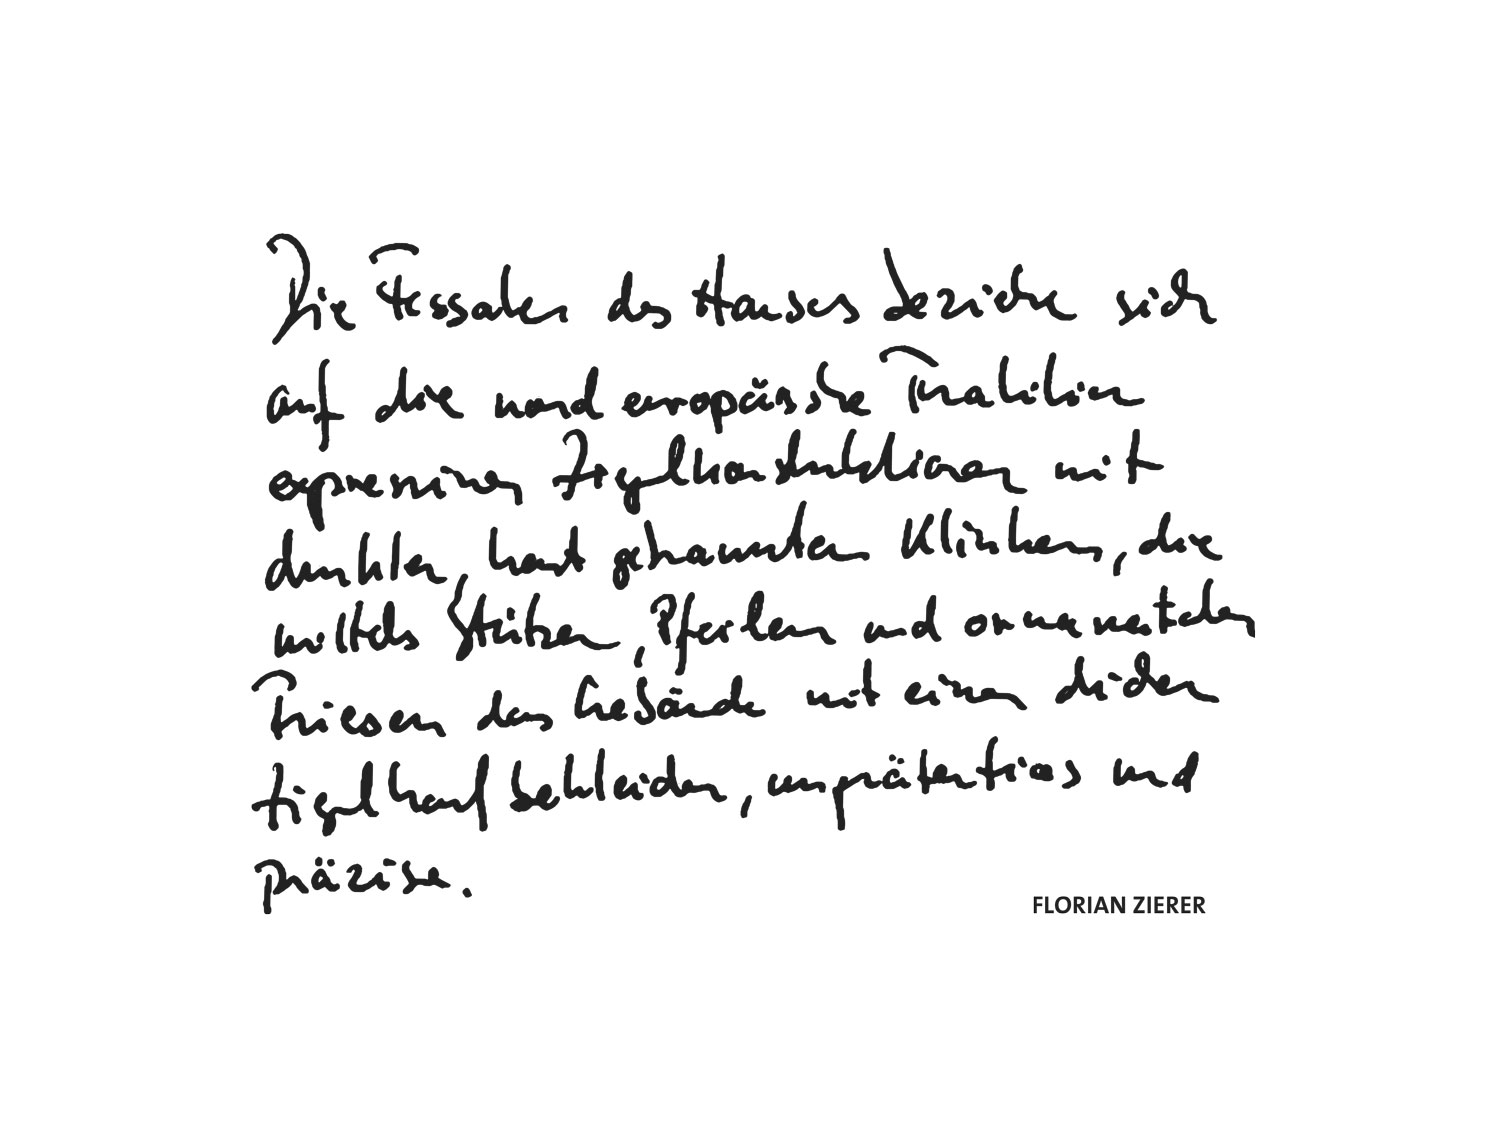 Die Fassaden des Hauses beziehen sich
auf die nordeuropäische Tradition
expressiver Ziegelkonstruktionen mit
dunklen, hart gebrannten Klinkern, die
mittels Stützen, Pfeilern und ornamentalen
Friesen das Gebäude mit einem
bekleiden, unprätentiös und
präzise.
FLORIAN ZIERER